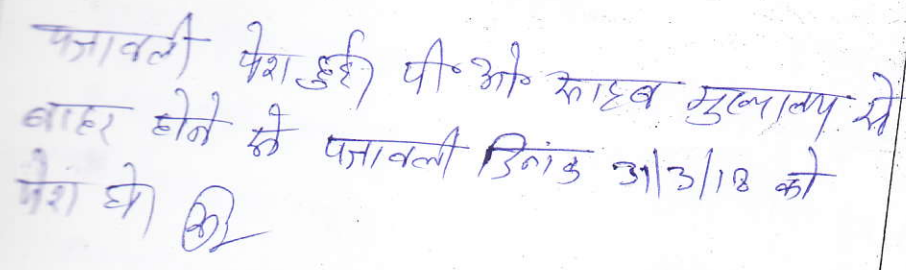 पत्रावली पेश हुई। पी॰ओ॰ साहब मुख्यालय से
बाहर होने से पत्रावली दिनांक 31/3/18 को
पेश हो।